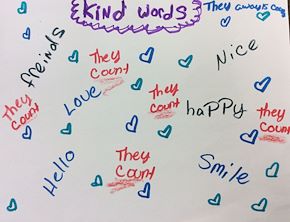 Kind Words
They always Cou
freinds
Nice
They
Count
They
Count
Love
They
Count
happy
They
Count
Hello
They
Count
Smile